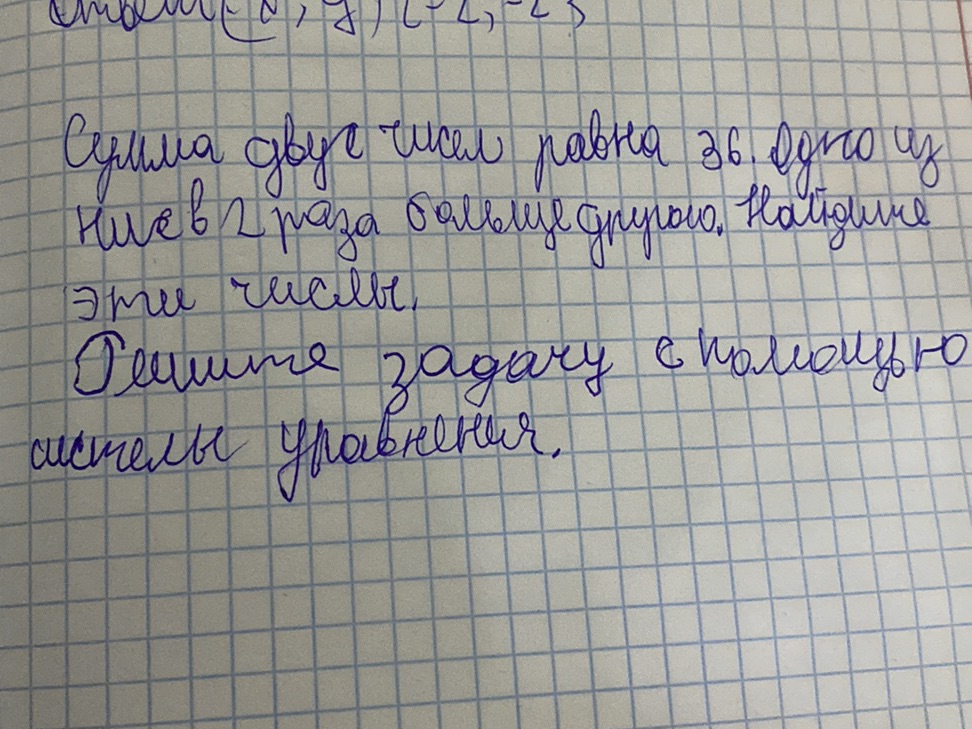 Ответ: (x; y) (-2; -2)
Сумма двух чисел равна 36. Одно из
них в 2 раза больше другого. Найдите
эти числы.
Решите задачу с помощью
системы уравнения.